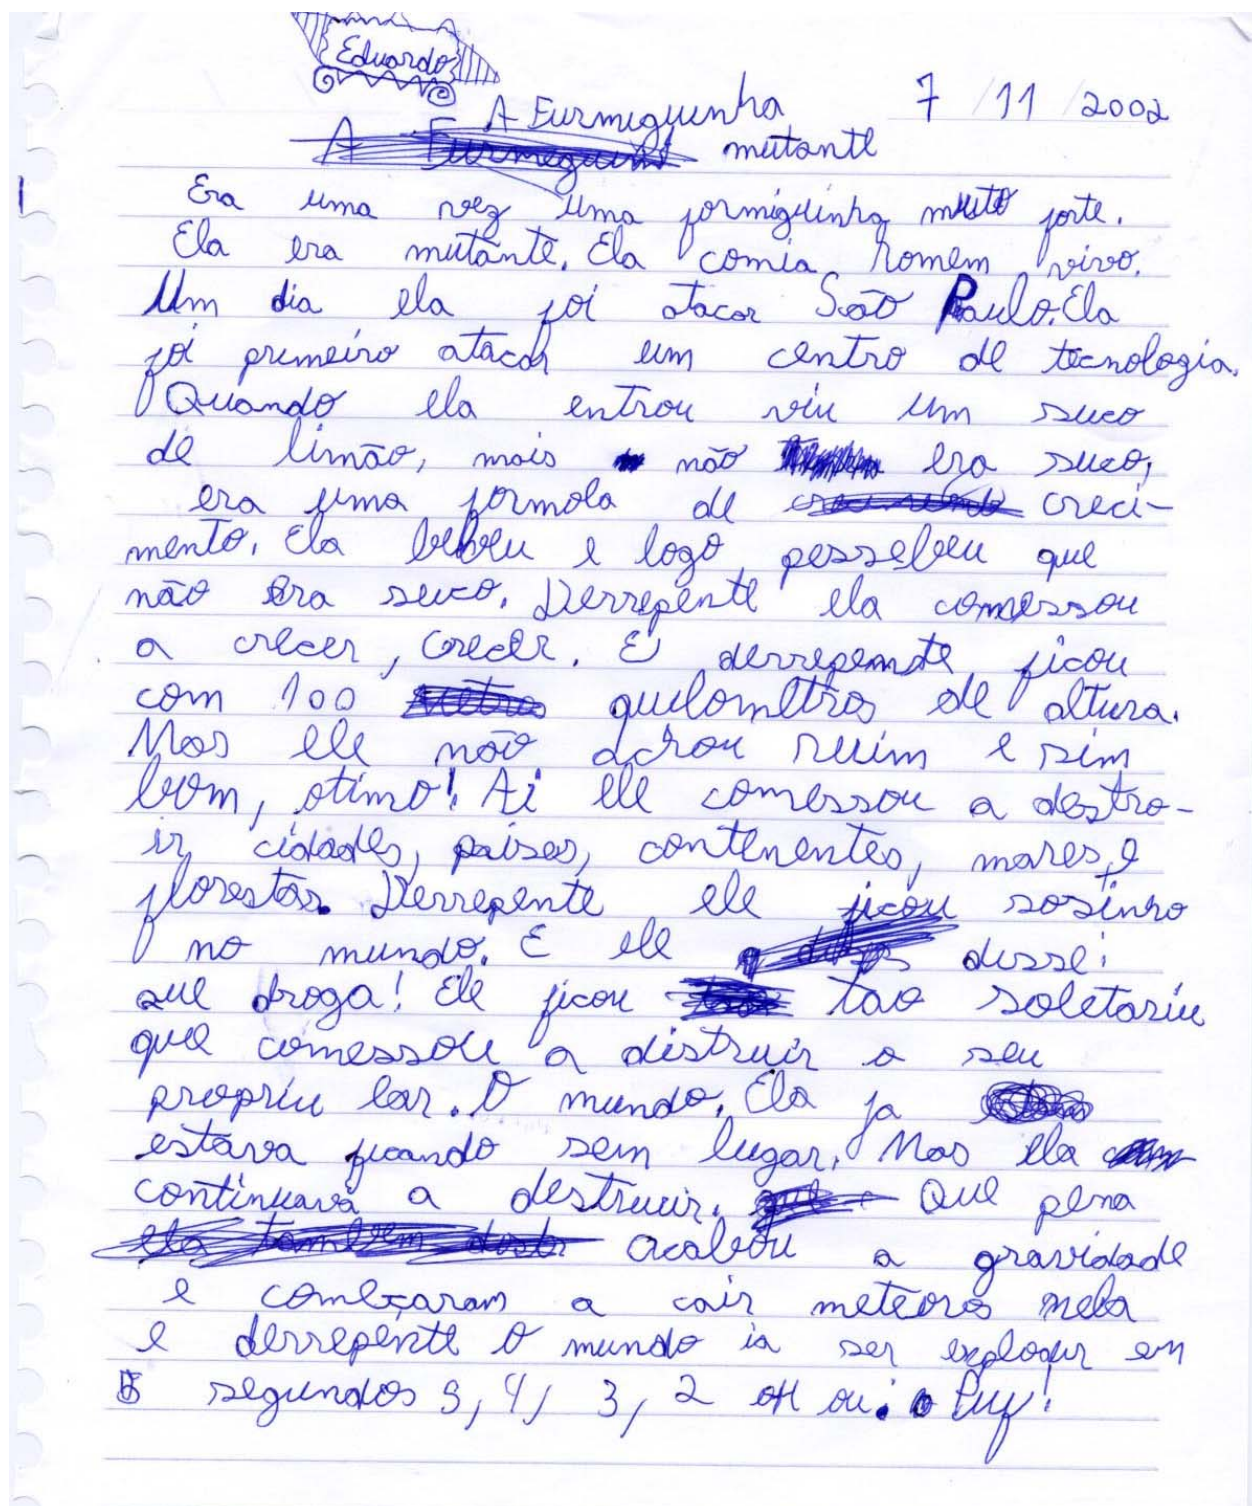 Eduardo
A Furmiguinha 7/11/2002
mutante
Era uma vez uma formiguinha muito forte.
Ela era mutante. Ela comia homem vivo.
Um dia ela foi atacar São Paulo. Ela
foi primeiro atacar um centro de tecnologia.
Quando ela entrou viu um suco
de limão, mais não era suco,
era uma formola de creci-
mento. Ela bebeu e logo pessebeu que
não era suco. Derrepente ela comessou
a crecer, crecer. E derrepente ficou
com 100 quilometros de altura.
Mas ele não achou ruim e sim
bom, otimo! Ai ele comessou a destro-
ir cidades, paises, contenentes, mares, e
florestas. Derrepente ele ficou sosinho
no mundo. E ele disse:
que droga! Ele ficou tao soletariu
que comessou a distruir o seu
propriu lar. O mundo. Ela ja
estava ficando sem lugar. Mas ela
continuava a destruir. Que pena
acabou a gravidade
e começaram a cair meteoros nela
e derrepente o mundo ia ser explodir em
5 segundos 5, 4, 3, 2 ou. Puf!